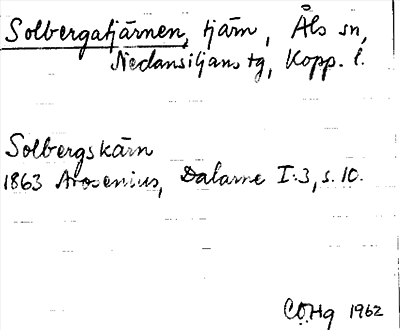 Solbergatjärnen, tjärn, Åls sn,
Nedansiljans tg, Kopp. l.
Solbergskärn
1863 Arosenius, Dalarne I:3, s. 10.
COHg 1962